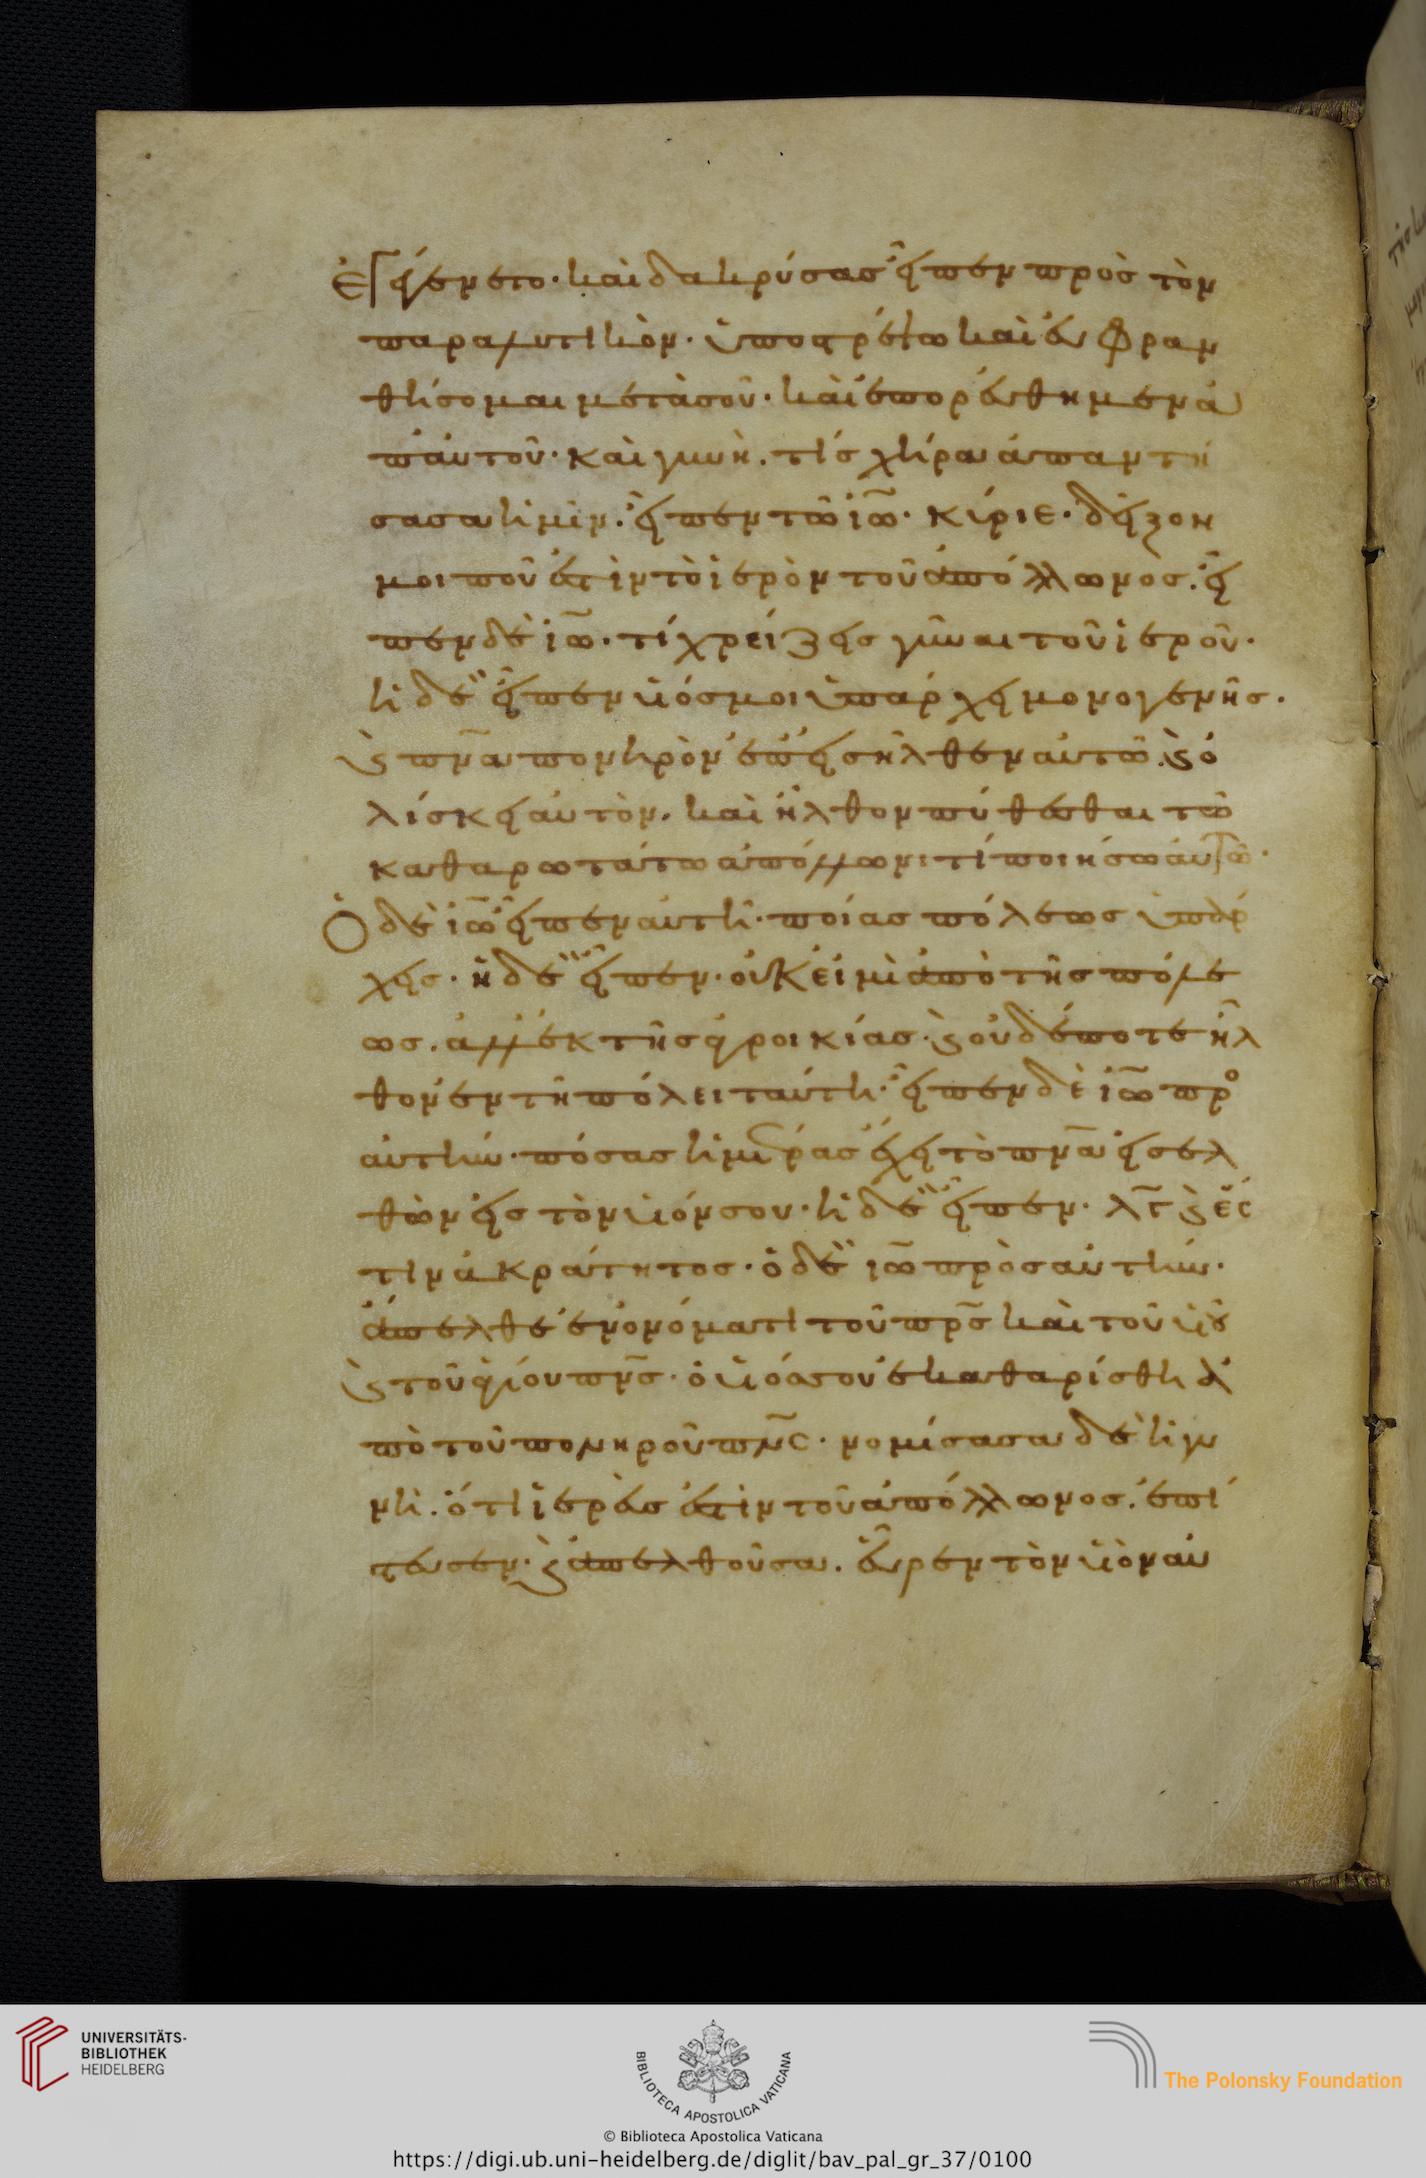 ἐγένετο· καὶ δακρύσας εἶπεν πρὸς τὸν
παραλυτικὸν· ὑποστρέψω καὶ εὐφραν
θήσομαι μετὰ σοῦ· καὶ ἐπορεύθημεν ἀ
π' αὐτοῦ· καὶ γυνὴ. τίς χήρα ἀπαντή
σασα ἡμῖν. εἶπεν τῶ ἰω̅· κύριε· δεῖξον
μοι ποῦ ἐστὶν τὸ ἱερὸν τοῦ ἀπόλλωνος. εἶ
πεν δὲ ἰω̅· τί χρείζεις γύναι τοῦ ἱεροῦ·
ἡ δὲ εἶπεν υἱός μοι ὑπάρχει μονογενῆς·
ϗ πν̅α πονηρὸν ἐπεισῆλθεν αὐτῶ. ϗ ὀ
λίσκει αὐτὸν· καὶ ἦλθον πύθεσθαι τῶ
καθαρωτάτω ἀπόλλωνι τί ποιήσω αὐτῶ·
Ὁ δὲ ἰω̅ εἶπεν αὐτῆ· ποίας πόλεως ὑπάρ
χεις· ἡ δὲ εἶπεν· οὐκ εἰμὶ ἀπὸ τῆς πόλε
ως. ἀλλ' ἐκ τῆς ἀγροικίας· ϗ οὐδέποτε ἦλ
θον ἐν τῆ πόλει ταύτη· εἶπεν δὲ ἰω̅ πρὸ
αὐτήν· πόσας ἡμέρας ἔχει τὸ πν̅α εἰσελ
θὼν εἰς τὸν υἱόν σου· ἡ δὲ εἶπεν· λγ̅ ϗ ἔς
τιν ἀκράτητος· ὁ δὲ ἰω̅ πρὸς αὐτήν·
ἄπελθε ἐν ὀνόματι τοῦ πρ̅ς καὶ τοῦ υἱοῦ
ϗ τοῦ ἁγίου πν̅ς· ὁ υἱός σου ἐκαθαρίσθη ἀ
πὸ τοῦ πονηροῦ πν̅ς· νομίσασα δὲ ἡ γυ
νὴ. ὅτι ἱερεὺς ἐστὶν τοῦ ἀπόλλωνος. ἐπί
στευσεν· ϗ ἀπελθοῦσα. εὗρεν τὸν υἱὸν αὐ
UNIVERSITÄTS-
BIBLIOTHEK
HEIDELBERG
BIBLIOTECA APOSTOLICA VATICANA
The Polonsky Foundation
© Biblioteca Apostolica Vaticana
https://digi.ub.uni-heidelberg.de/diglit/bav_pal_gr_37/0100